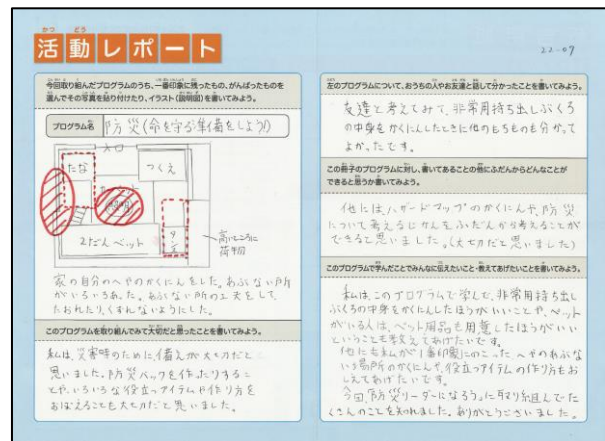 活動レポート
22-07
今回取り組んだプログラムのうち、一番印象に残ったもの、がんばったものを
選んでその写真を貼り付けたり、イラスト(説明図)を書いてみよう。
プログラム名 防災(命を守る準備をしよう!)
入口
たな
つくえ
2だんベット
高いところに
荷物
家の自分のへやのかくにんをした。あぶない所
がいろいろあた。あぶない所の工夫をして、
たおれたり、くずれないようにした。
このプログラムを取り組んでみて大切だと思ったことを書いてみよう。
私は、災害時のために、備えが大切だと
思いました。防災バックを作ったりするこ
とや、いろいろな役立つアイテムや作り方を
おぼえることも大切だと思いました。
左のプログラムについて、おうちの人やお友達と話して分かったことを書いてみよう。
友達と考えてみて、非常用持ち出しぶくろ
の中身をかくにんしたときに他のもちものも分かって
よかったです。
この冊子のプログラムに対し、書いてあることの他にふだんからどんなことが
できると思うか書いてみよう。
他にはハザードマップのかくにんや、防災
について考えるじかんをふだんから考えることが
できると思いました。(大切だと思いました)
このプログラムで学んだことでみんなに伝えたいこと・教えてあげたいことを書いてみよう。
私は、このプログラムで学んで、非常用持ち出し
ぶくろの中身をかくにんしたほうがいいことや、ペット
がいる人は、ペット用品も用意したほうがいい
ということも教えてあげたいです。
他にも私が1番印象にのこった、へやのあぶな
い場所のかくにんや、役立つアイテムの作り方もお
しえてあげたいです。
今回「防災リーダーになろう」に取り組んでた
くさんのことを知れました。ありがとうございました。